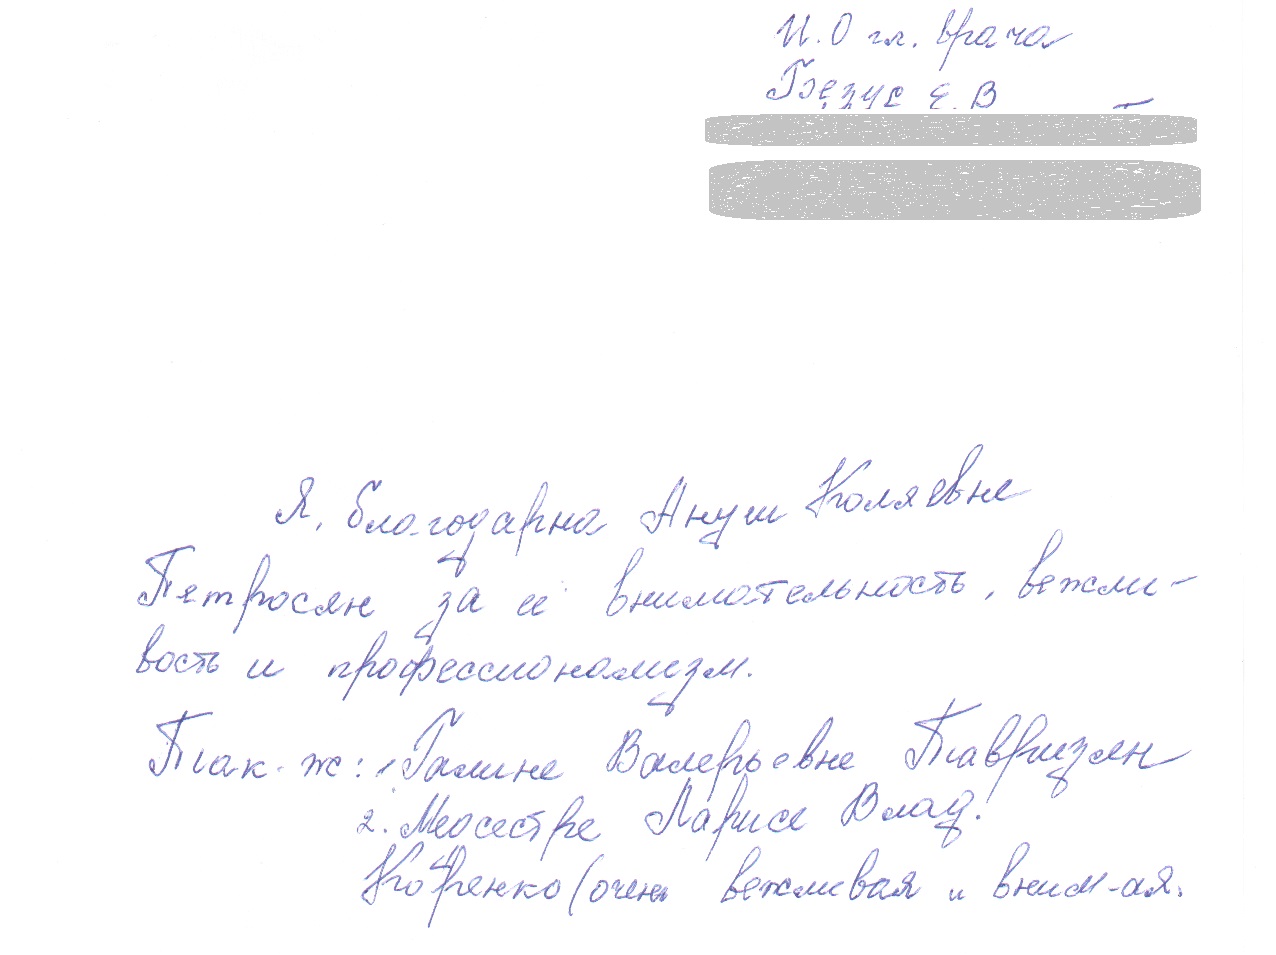 И.О гл. врача
Безус Е.В
Я, благодарна Ануш Коляевне
Петросян за её внимательность, вежли-
вость и профессионализм.
Так-ж: 1 Галине Валерьевне Тавризян
2. Медсестре Ларисе Влад.
Коренко (очень вежливая и вним-ая.